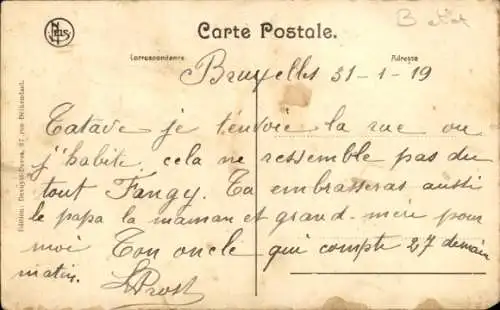 Carte Postale.
Correspondance
Adresse
Bruxelles 31-1-19
Tatave je t'envoie la rue ou
j'habite, cela ne ressemble pas du
tout Tangy. Ta embrasseras aussi
le papa la maman et grand-mère pour
moi Ton oncle qui compte 27 demain
matin.
L Prost